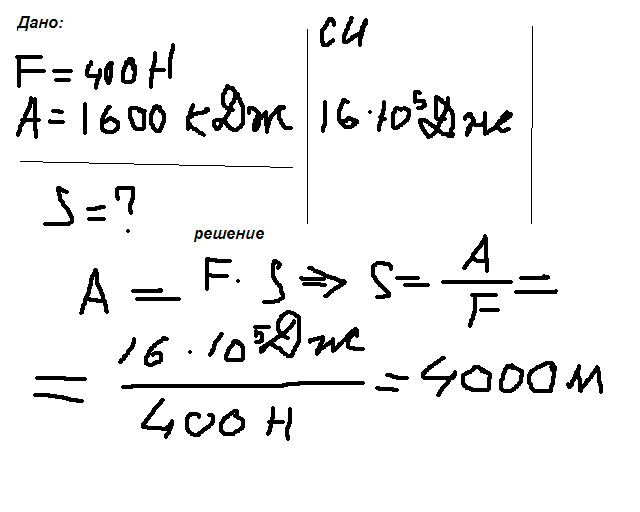 Дано:
СИ
F = 400 Н
A = 1600 кДж
16 · 10⁵ Дж
S = ?
решение
A = F · S ⇒ S = A/F =
= 16 · 10⁵ Дж / 400 Н = 4000 м